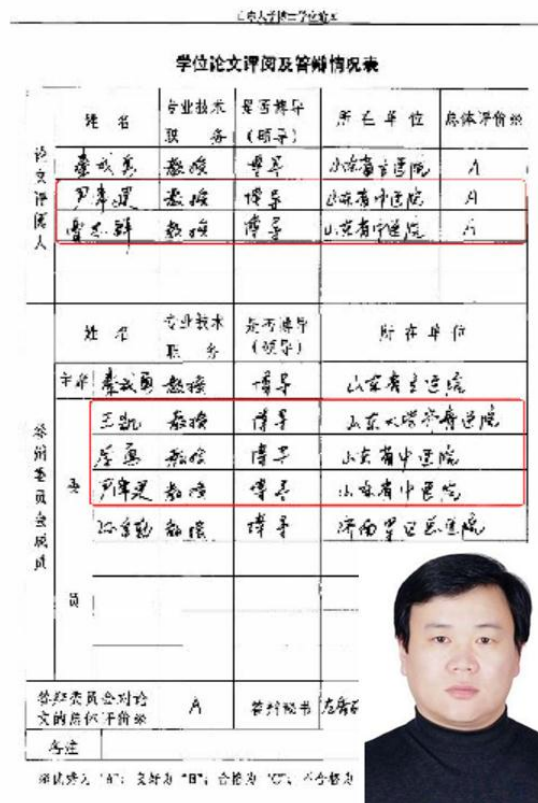 山东大学博士学位论文
学位论文评阅及答辩情况表
论文评阅人
姓 名 专业技术职 务 是否博导(硕导) 所 在 单 位 总体评价级
教授 博导 山东省立医院 A
教授 博导 山东省中医院 A
教授 博导 山东省中医院 A
答辩委员会成员
姓 名 专业技术职 务 是否博导(硕导) 所 在 单 位
主席 教授 博导 山东省立医院
委员
王凯 教授 博导 山东大学齐鲁医院
教授 博导 山东省中医院
教授 博导 山东省中医院
教授 博导 济南军区总医院
答辩委员会对论文的总体评价级 A 答辩秘书
备注
优秀为"A";良好为"B";合格为"C";不合格为